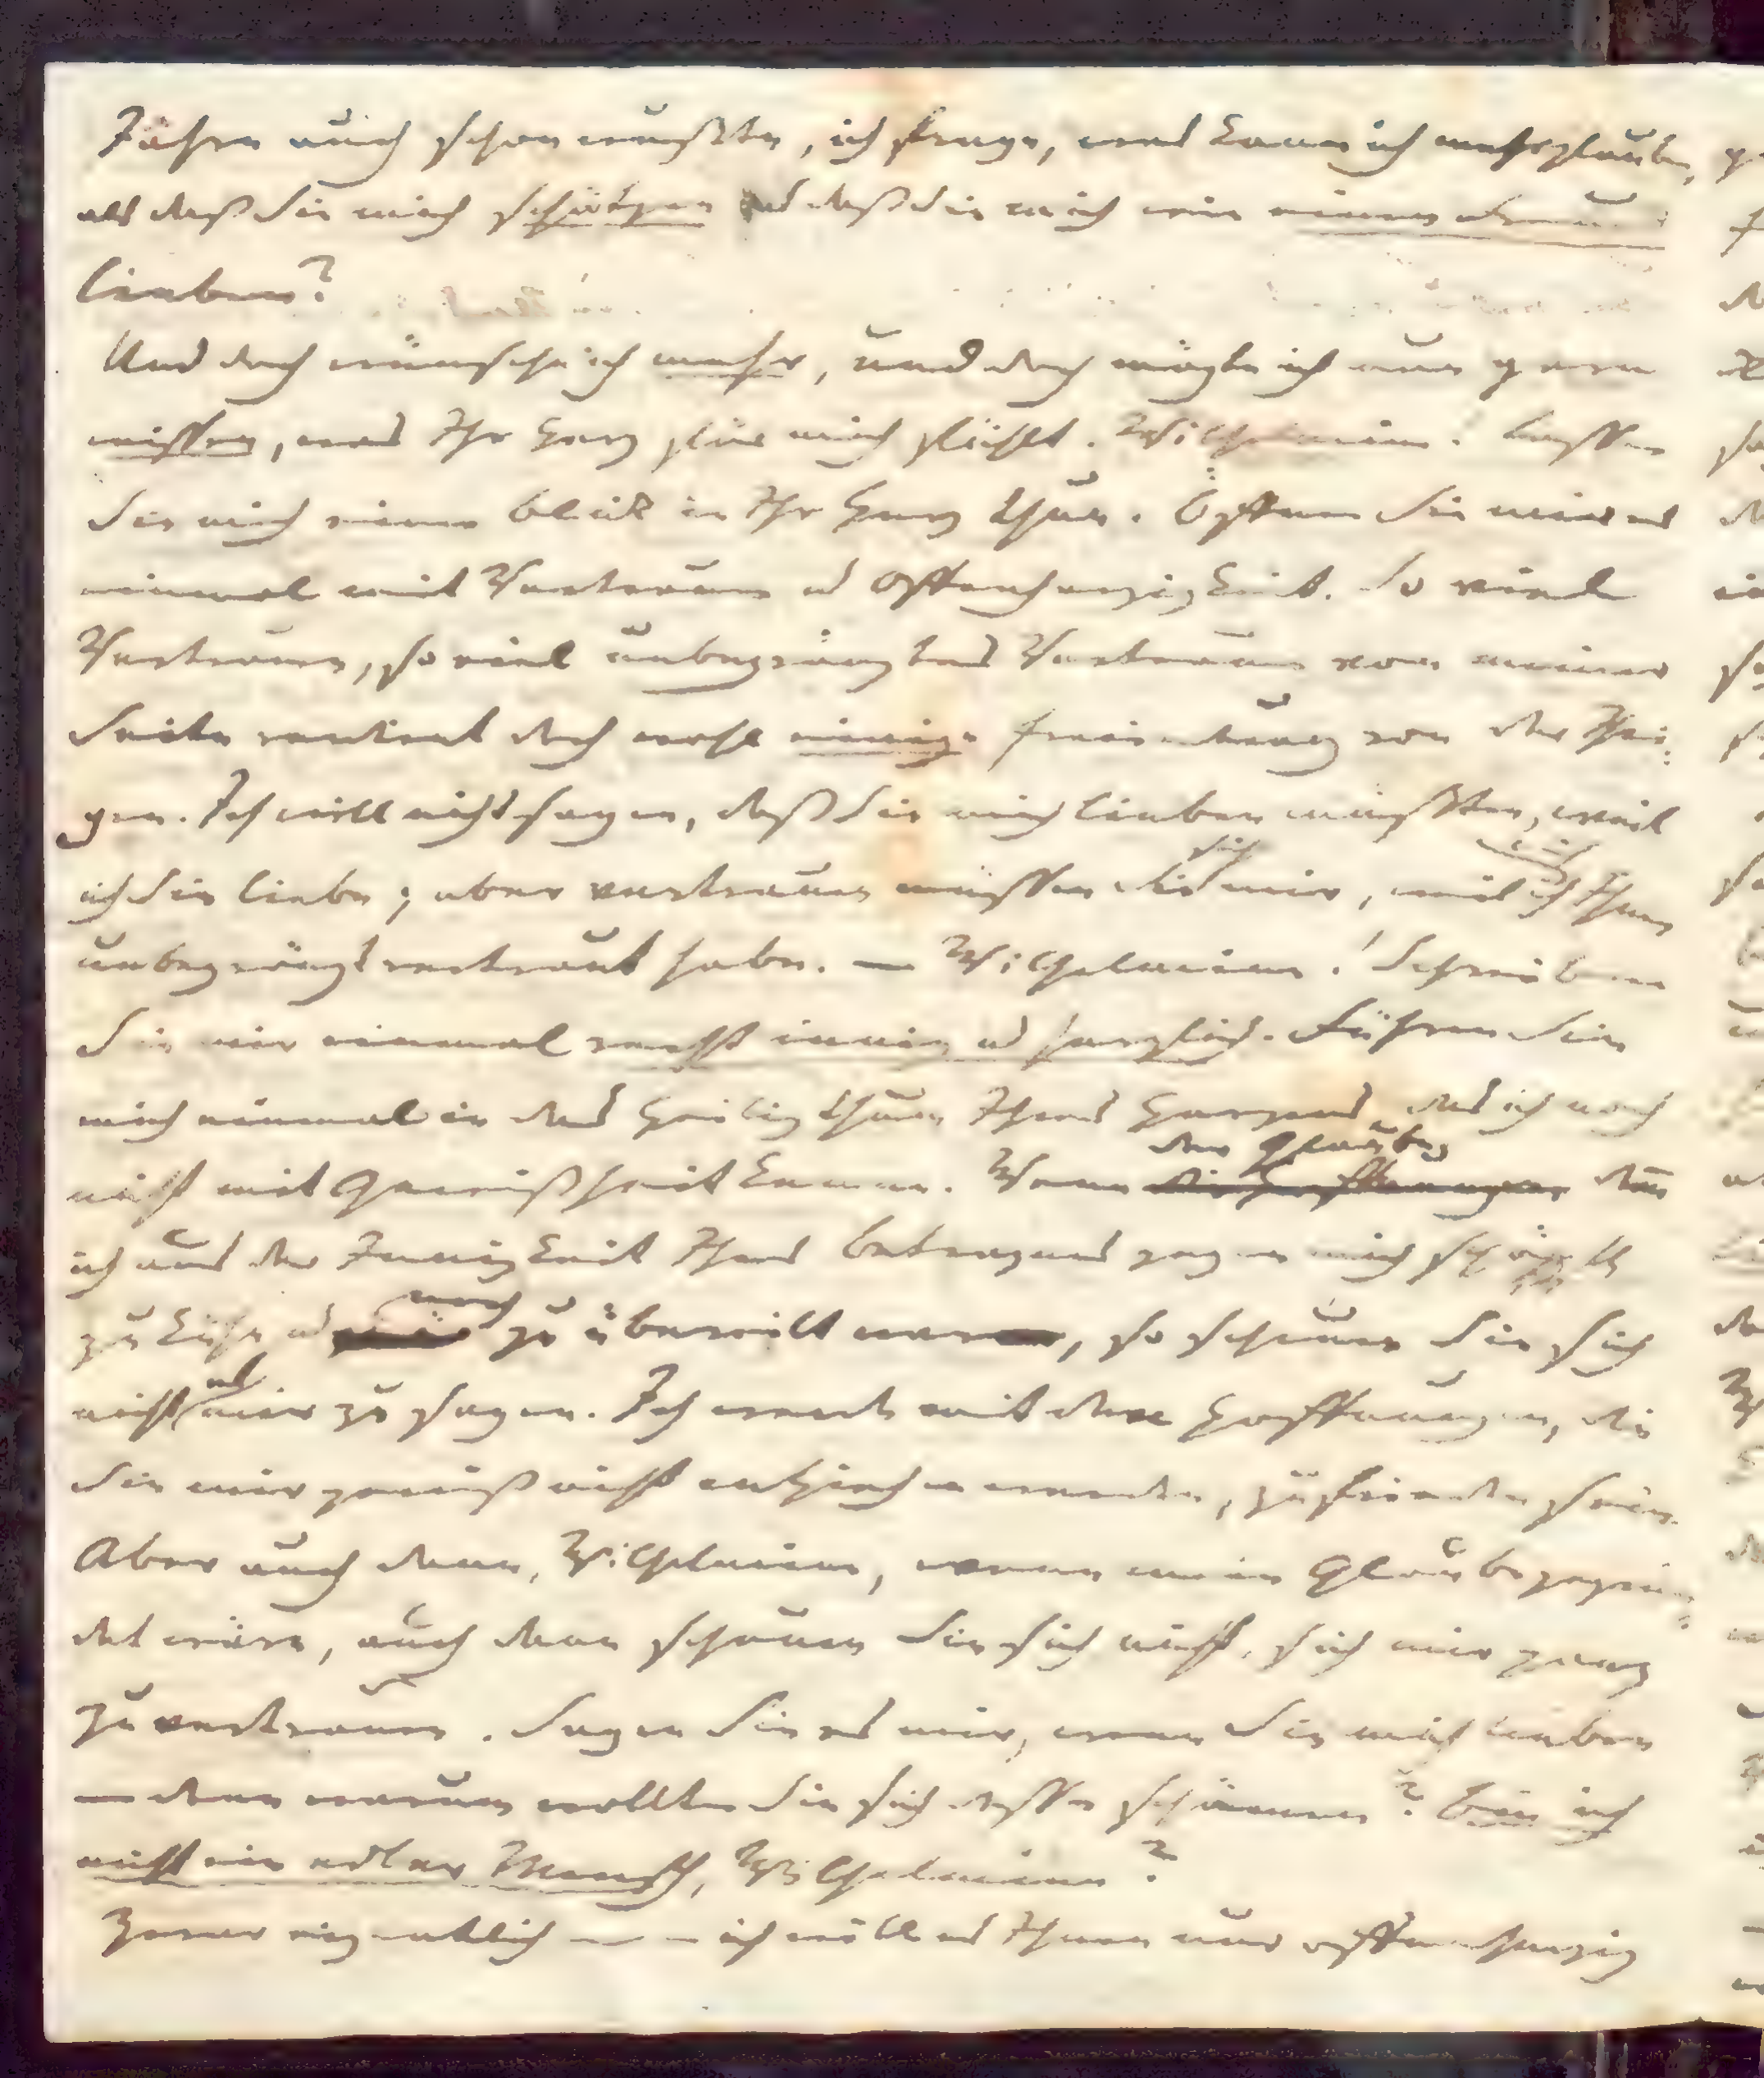 auch schon wüßten, ich frage, was kann ich mehr glauben,
als daß Sie mich schätzen u daß Sie mich wie einen Freund
lieben?
Und doch wünsche ich mehr, und doch mögte ich nun gern
wissen, was Ihr Herz für mich fühlt. Wilhelmine! Lassen
Sie mich einen Blick in Ihr Herz thun. Öffnen Sie mir es
einmal mit Vertraun u Offenherzigkeit. So viel
Vertrauen, so viel unbegränztes Vertrauen von meiner
Seite verdient doch wohl einige Erwiederung von der Ihri:
gen. Ich will nicht sagen, daß Sie mich lieben müßten, weil
ich Sie liebe; aber vertrauen müssen Sie sich mir, weil ich mich Ihnen
unbegränzt vertraut habe. — Wilhelmine! Schreiben
Sie mir einmal recht innig u herzlich. Führen Sie
mich einmal in das Heiligthum Ihres Herzens, das ich noch
nicht mit Gewißheit kenne. Wenn der Glaube, den
ich aus der Innigkeit Ihres Betragens gegen mich schöpfte
zu kühn u noch zu übereilt war, so scheuen Sie sich
nicht es mir zu sagen. Ich werde mit den Hoffnungen, die
Sie mir gewiß nicht entziehen werden, zufrieden sein.
Aber auch dann, Wilhelmine, wenn mein Glaube gegrün:
det wäre, auch dann scheuen Sie sich nicht, sich mir ganz
zu vertrauen. Sagen Sie es mir, wenn Sie mich lieben
— denn warum wollten Sie sich dessen schämen? Bin ich
nicht ein edler Mensch, Wilhelmine?
Zwar eigentlich — — ich will es Ihnen nur offenherzig